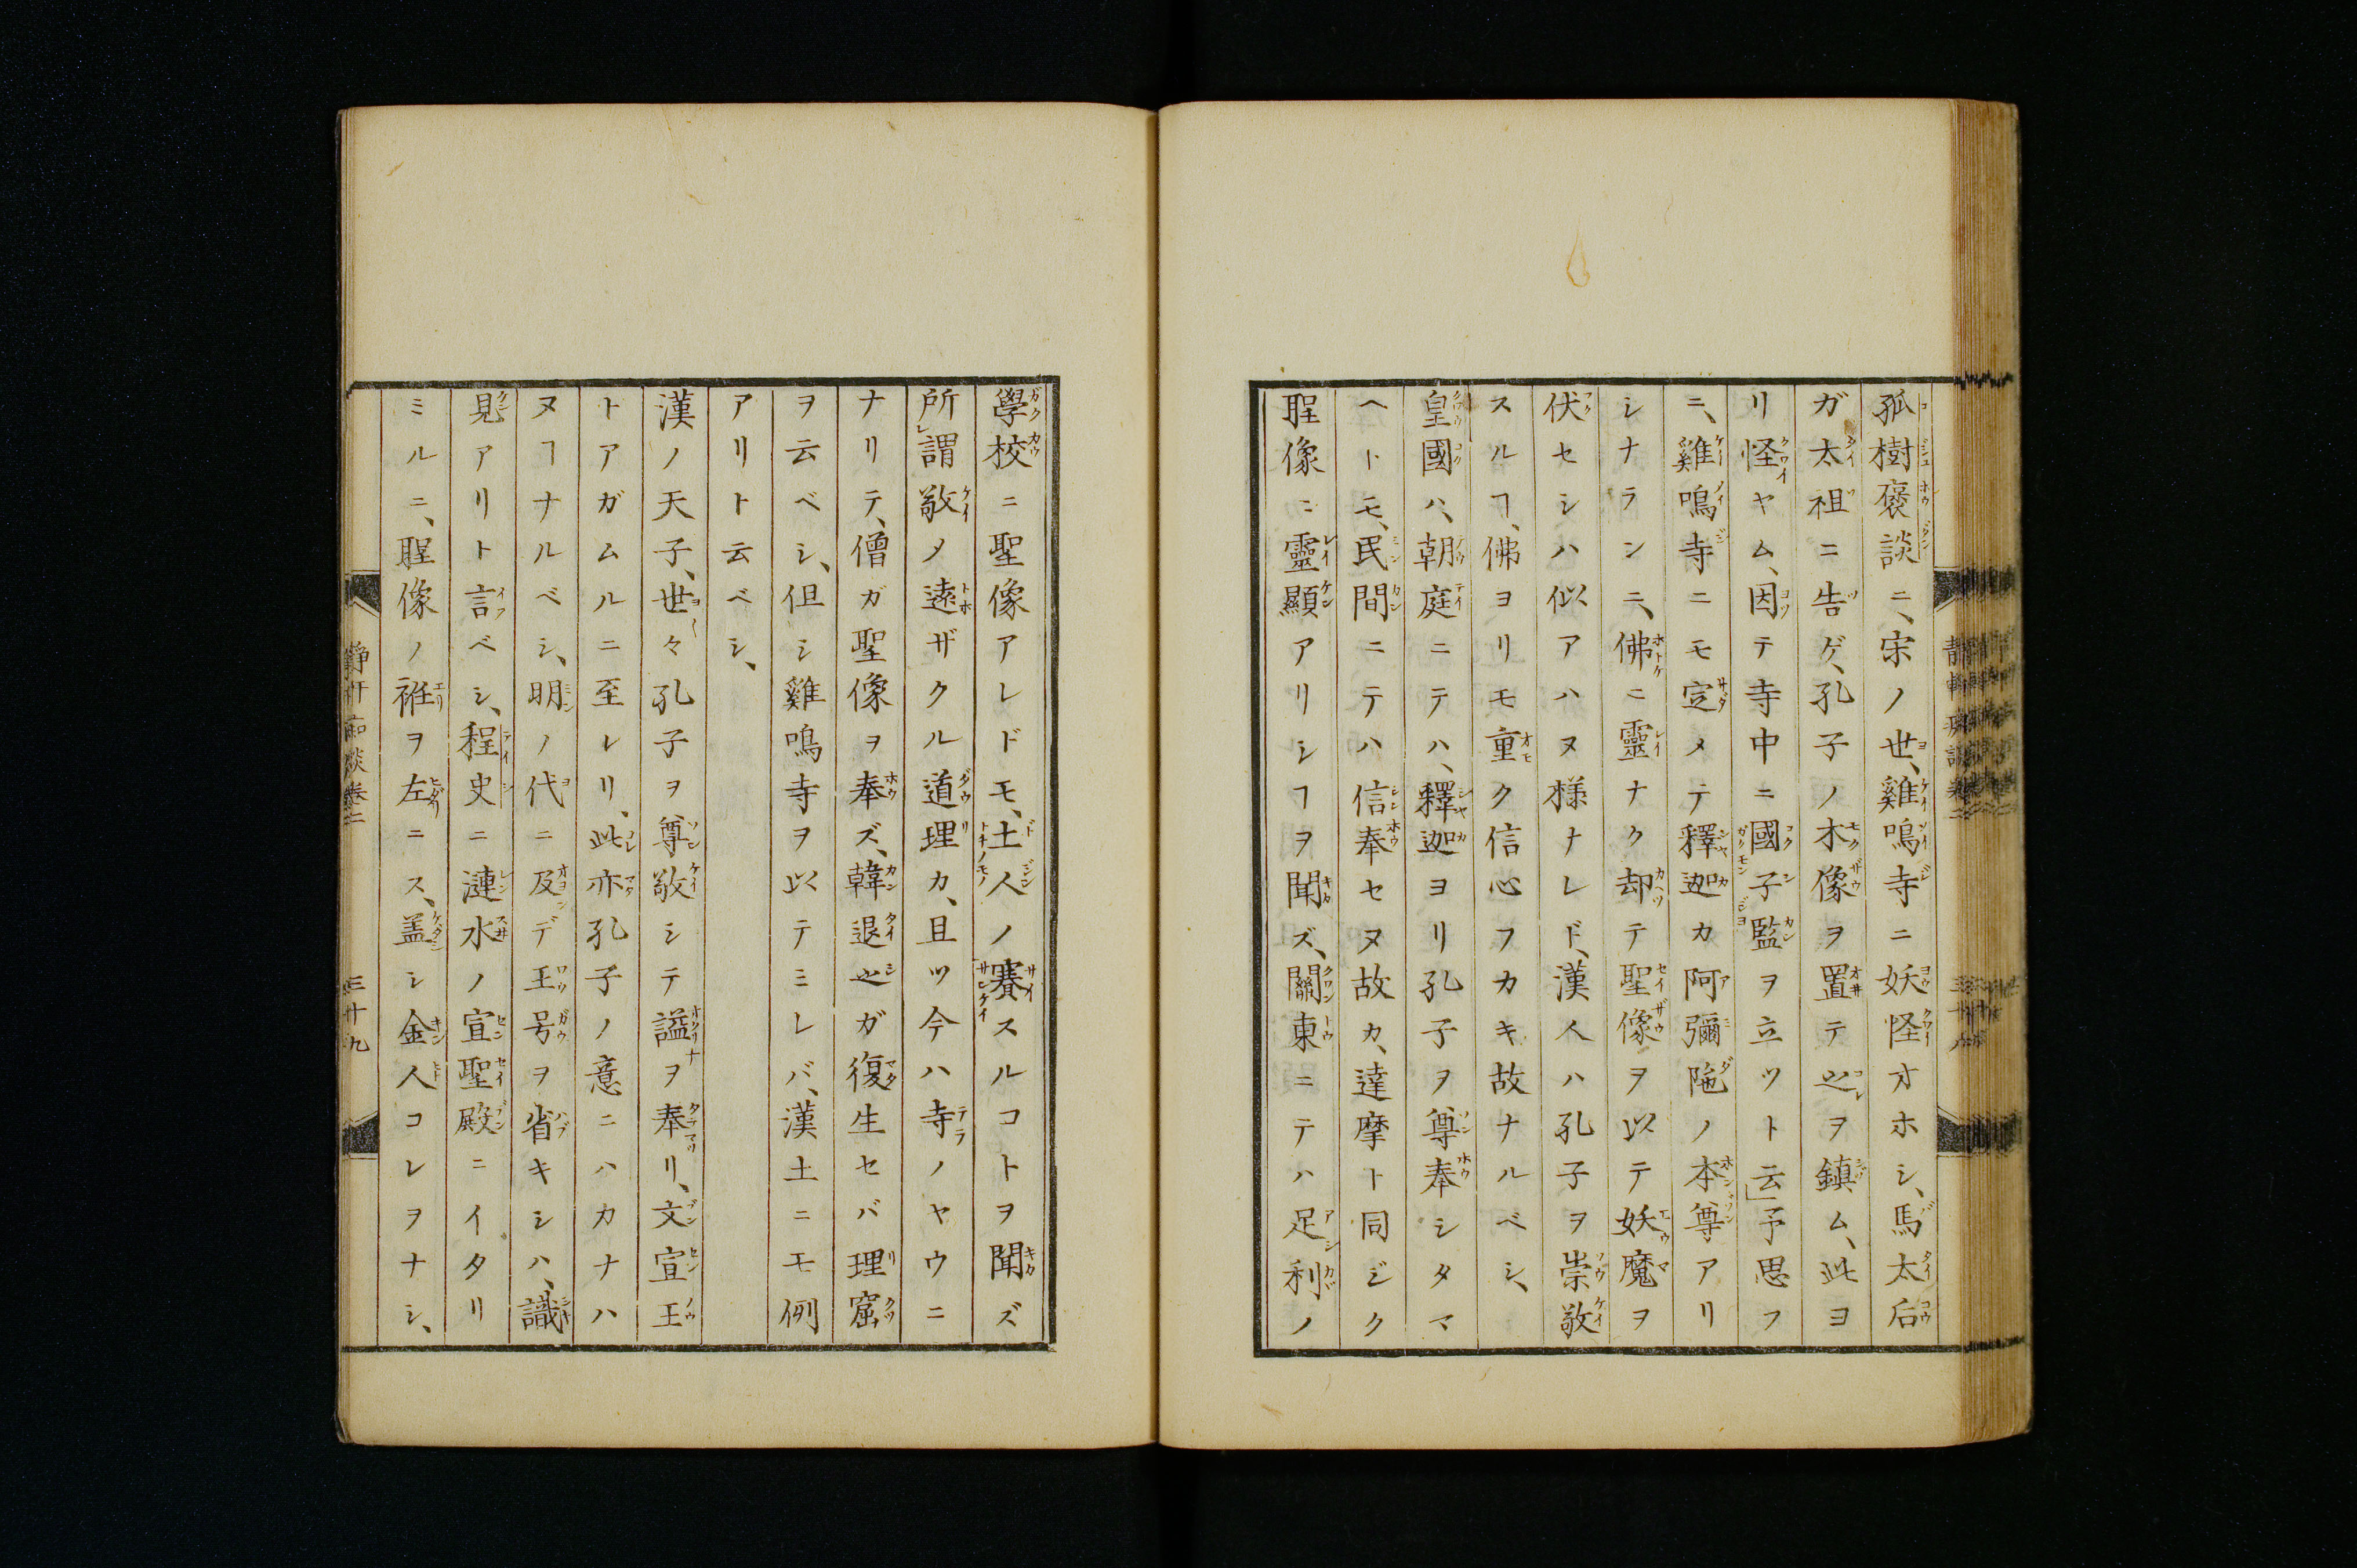 孤樹裒談ニ、宋ノ世、雞鳴寺ニ妖怪オホシ、馬太后
ガ太祖ニ告ゲ、孔子ノ木像ヲ置テ之ヲ鎮ム、此ヨ
リ怪ヤム、因テ寺中ニ國子監ヲ立ツト云」予思フ
ニ、雞鳴寺ニモ定メテ釋迦カ阿彌陁ノ本尊アリ
シナランニ、佛ニ靈ナク却テ聖像ヲ以テ妖魔ヲ
伏セシハ似アハヌ様ナレド、漢人ハ孔子ヲ崇敬
スルヿ、佛ヨリモ重ク信心フカキ故ナルベシ、
皇國ハ、朝庭ニテハ、釋迦ヨリ孔子ヲ尊奉シタマ
ヘトモ、民間ニテハ信奉セヌ故カ、達摩ト同ジク
聖像ニ靈顯アリシヿヲ聞ズ、關東ニテハ足利ノ
學校ニ聖像アレドモ、土人ノ賽スルコトヲ聞ズ
所謂敬メ遠ザクル道理カ、且ツ今ハ寺ノヤウニ
ナリテ、僧ガ聖像ヲ奉ズ、韓退之ガ復生セバ理窟
ヲ云ベシ、但シ雞鳴寺ヲ以テミレバ、漢土ニモ例
アリト云ベシ、
漢ノ天子、世々孔子ヲ尊敬シテ諡ヲ奉リ、文宣王
トアガムルニ至レリ、此亦孔子ノ意ニハカナハ
ヌヿナルベシ、明ノ代ニ及デ王号ヲ省キシハ、識
見アリト言ベシ、桯史ニ漣水ノ宣聖殿ニイタリ
ミルニ、聖像ノ袵ヲ左ニス、盖シ金人コレヲナシ、
靜軒痴談卷二
三十九